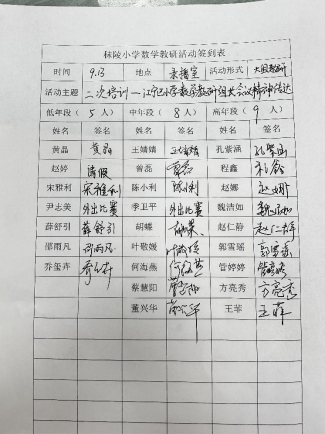 秣陵小学数学教研活动签到表
时间 9.13 地点 录播室 活动形式 大组教研
活动主题 二次培训—江宁区小学数学教研组长会议精神传达
低年段（5人） 中年段（8人） 高年段（9人）
姓名 签名 姓名 签名 姓名 签名
黄晶 黄晶 王婧婧 王婧婧 孔紫涵 孔紫涵
赵婷 请假 曾磊 曾磊 程鑫 程鑫
宋雅利 宋雅利 陈小利 陈小利 赵娜 赵娜
尹志美 外出比赛 季卫平 外出比赛 魏洁如 魏洁如
薛舒引 薛舒引 胡蝶 胡蝶 赵仁梅
邵雨凡 邵雨凡 叶敬媛 叶敬媛 郭雪瑶 郭雪瑶
乔玺卉 乔玺卉 何海燕 何海燕 管婷婷 管婷婷
蔡慧阳 方亮秀 方亮秀
董兴华 董兴华 王菲 王菲